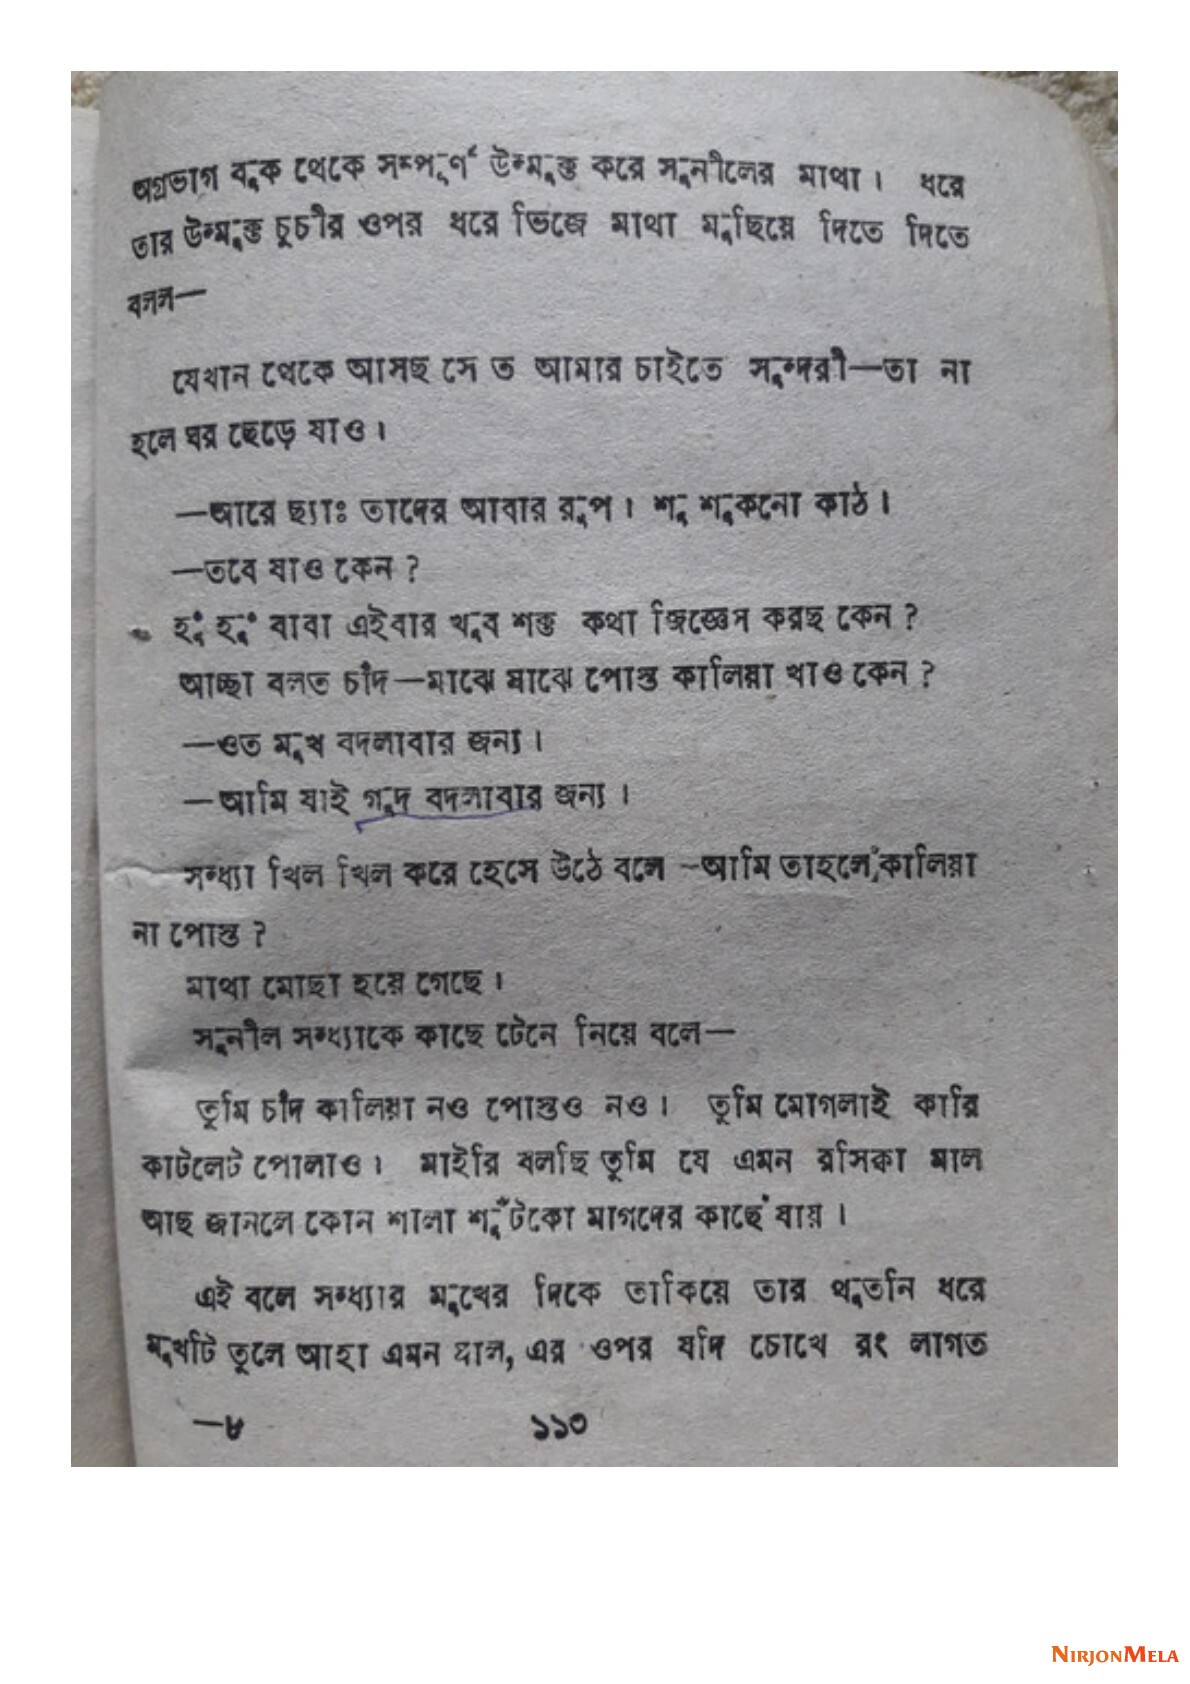 অগ্রভাগ বুক থেকে সম্পূর্ণ উন্মুক্ত করে সুনীলের মাথা। ধরে
তার উন্মুক্ত চুচীর ওপর ধরে ভিজে মাথা মুছিয়ে দিতে দিতে
বলল—
যেখান থেকে আসছ সে ত আমার চাইতে সুন্দরী—তা না
হলে ঘর ছেড়ে যাও।
—আরে ছ্যাঃ তাদের আবার রূপ। শু শুকনো কাঠ।
—তবে যাও কেন?
হুঁ হুঁ বাবা এইবার খুব শক্ত কথা জিজ্ঞেস করছ কেন?
আচ্ছা বলত চাঁদ—মাঝে মাঝে পোস্ত কালিয়া খাও কেন?
—ওত মুখ বদলাবার জন্য।
—আমি যাই গুদ বদলাবার জন্য।
সন্ধ্যা খিল খিল করে হেসে উঠে বলে —আমি তাহলে কালিয়া
না পোস্ত?
মাথা মোছা হয়ে গেছে।
সুনীল সন্ধ্যাকে কাছে টেনে নিয়ে বলে—
তুমি চাঁদ কালিয়া নও পোস্তও নও। তুমি মোগলাই কারি
কাটলেট পোলাও। মাইরি বলছি তুমি যে এমন রসিকা মাল
আছ জানলে কোন শালা শুঁটকো মাগদের কাছে যায়।
এই বলে সন্ধ্যার মুখের দিকে তাকিয়ে তার থুতনি ধরে
মুখটি তুলে আহা এমন গাল, এর ওপর যদি চোখে রং লাগত
—৮ ১১৩
NIRJONMELA